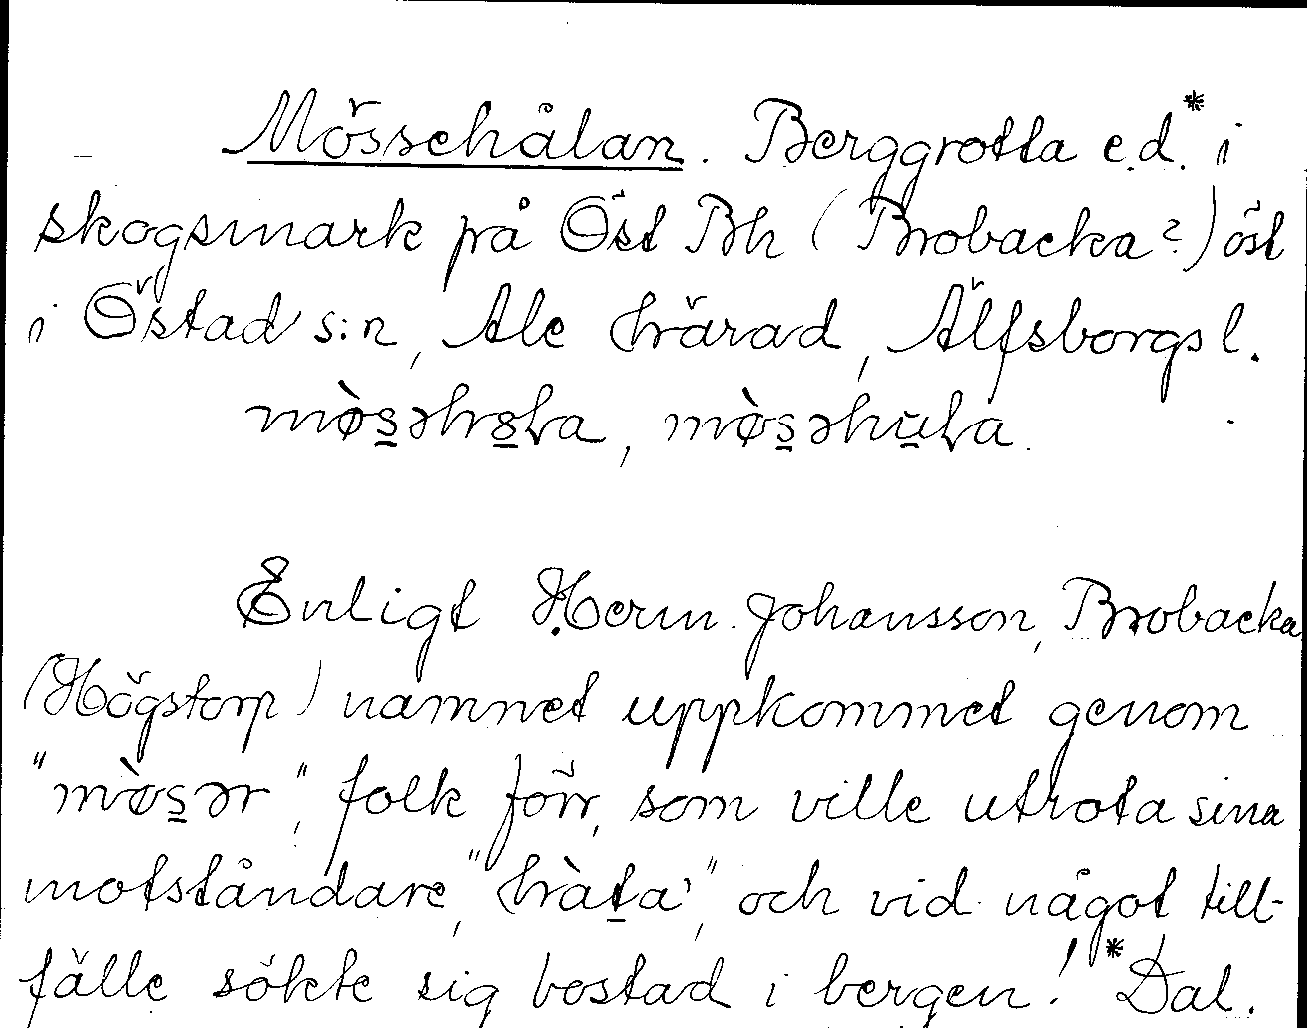 Mössehålan. Berggrotta e.d.* i
skogsmark på Öst Bh (Brobacka?) öst
i Östad s:n, Ale härad, Älfsborgs l.
mø̀s̠əh8̠ɬa, mø̀s̠əhu̠ɬa.
Enligt Herm. Johansson, Brobacka
(Högstorp) namnet uppkommet genom
"mø̀s̠ər", folk förr, som ville utrota sina
motståndare, "hàt̠a", och vid något till-
fälle sökte sig bostad i bergen! *Dal.